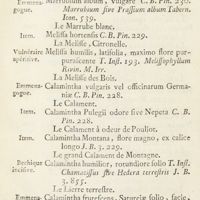 Emmena- Marrubium album, vulgare C. B. Pin. 230.
gogue. Marrubium sive Prassium album Tabern.
Icon. 539.
Le Marrube blanc.
Item. Melissa hortensis C. B. Pin. 229.
La Melisse, Citronelle.
Vulnéraire Melissa humilis, latifolia, maximo flore pur-
apéritive. purascente T. Inst. 193. Melissophyllum
Rivin. M. Irr.
La Melisse des Bois.
Emmena- Calamintha vulgaris vel officinarum Germa-
gogue. niæ C. B. Pin. 228.
Le Calament.
Item. Calamintha Pulegii odore sive Nepeta C. B.
Pin. 228.
Le Calament à odeur de Pouliot.
Item. Calamintha Montana, flore magno, ex calice
longo J. B. 3. 229.
Le grand Calament de Montagne.
Bechique Calamintha humilior, rotundiore folio T. Inst.
incisive. Chamæcissus sive Hedera terrestris J. B.
3. 855.
Le Lierre terrestre.
Emmena- Calamintha frutescens, Satureiæ folio, facie,